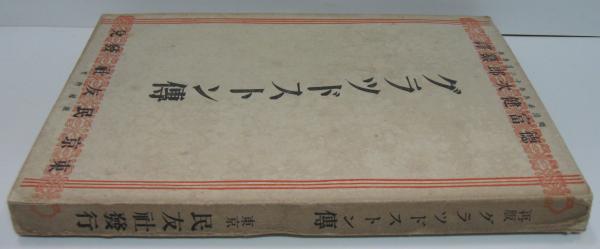 德富健次郎
グラツドストン傳
東京 民友社發兌
再版 グラツドストン傳 東京 民友社發行